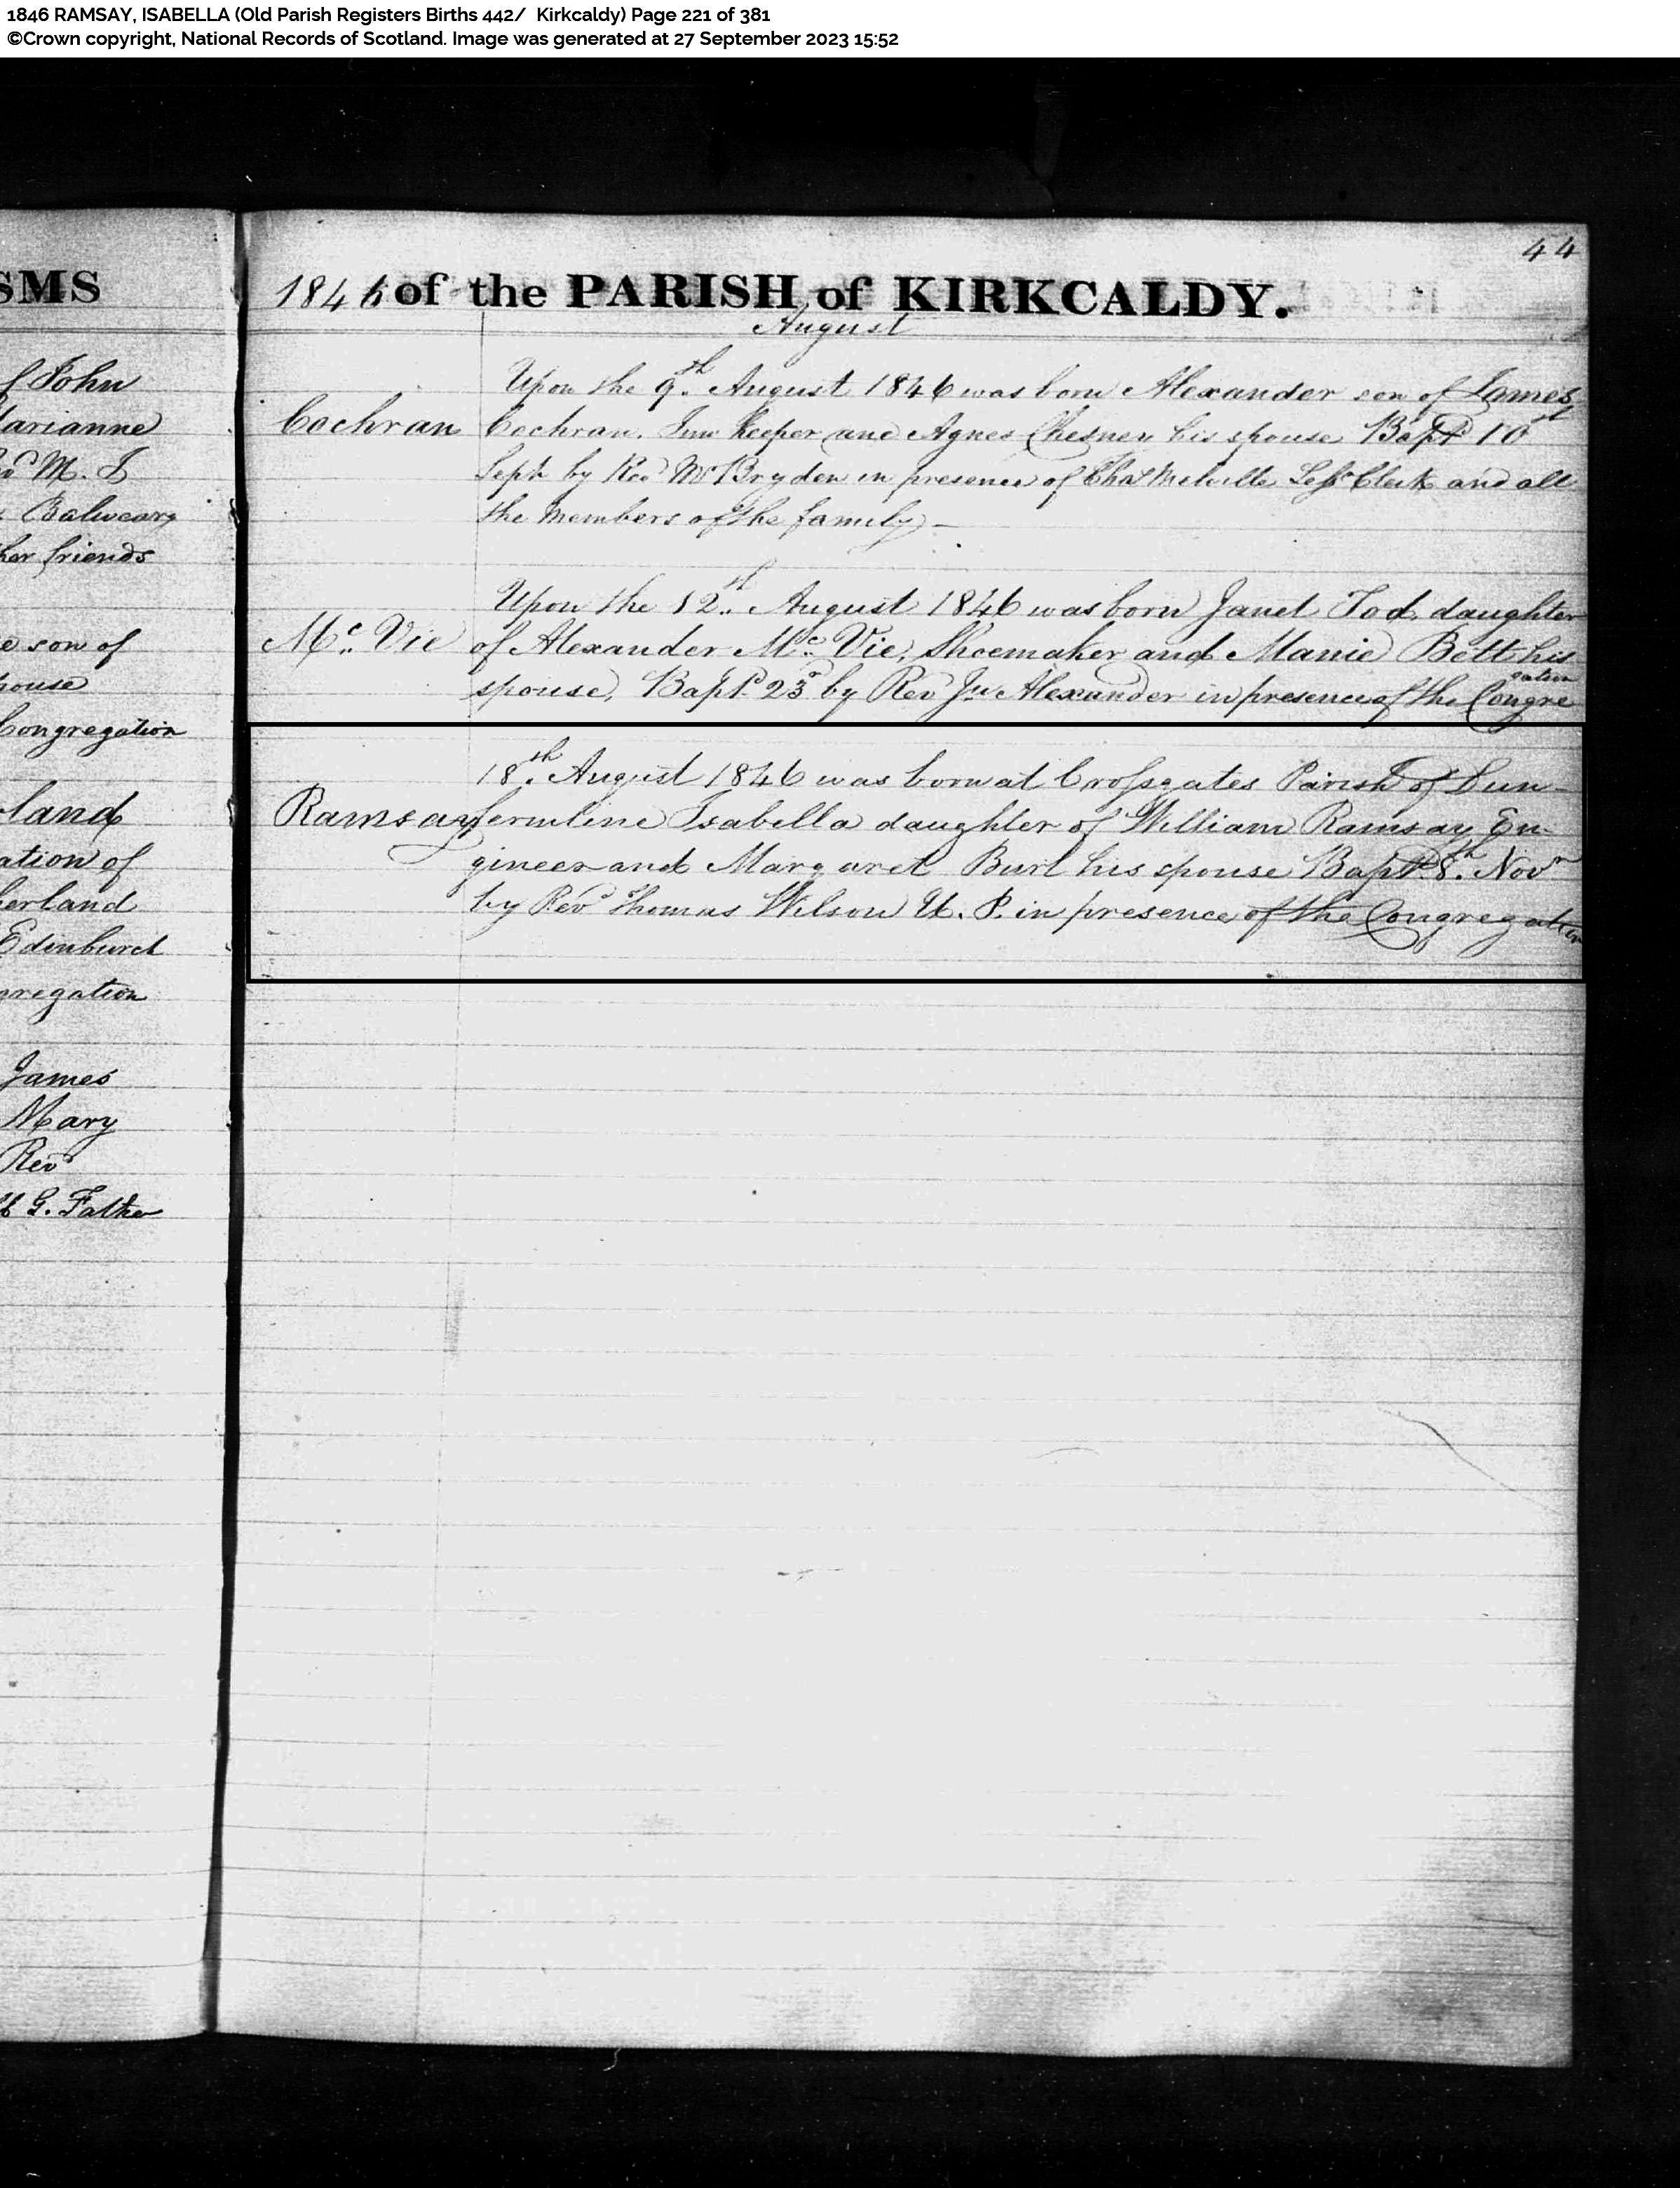 1846 RAMSAY, ISABELLA (Old Parish Registers Births 442/ Kirkcaldy) Page 221 of 381
©Crown copyright, National Records of Scotland. Image was generated at 27 September 2023 15:52
SMS
f John
Marianne
M. J
Balwearg
her friends
e son of
pouse
Congregation
land
ation of
herland
Edinburch
gregation
James
Mary
Revd
G. Father
44
1846 of the PARISH of KIRKCALDY.
August
Upon the 9th August 1846 was born Alexander son of James
Cochran Cochran. Inn Keeper and Agnes Chesney his spouse Bapd 10th
Sept by Revd Mr Bryden in presence of Chas Melville Sess Clerk and all
the members of the family –
Upon the 12th August 1846 was born Janet Tod, daughter
Mc Vie of Alexander Mc Vie, Shoemaker and Manie Bett his
spouse, Bapt 23d by Rev Jn Alexander in presence of the Congregation
18th August 1846 was born at Crossgates Parish of Dun-
Ramsay fermline Isabella daughter of William Ramsay En-
gineer and Margaret Burt his spouse Bapd 8th Novr
by Revd Thomas Wilson U. P. in presence of the Congregation